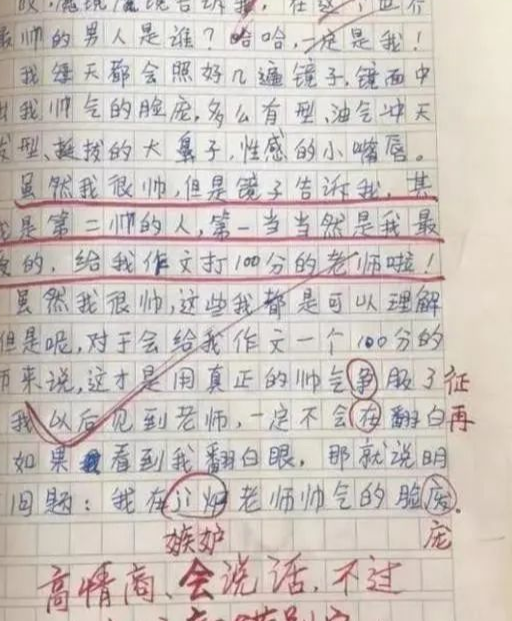 告诉我,在这个世界
帅的男人是谁?哈哈,一定是我!
我每天都会照好几遍镜子,镜面中
我帅气的脸庞,多么有型,油气冲天
型、挺拔的大鼻子,性感的小嘴唇。
虽然我很帅,但是镜子告诉我,其
是第二帅的人,第一当当然是我最
的,给我作文打100分的老师啦!
虽然我很帅,这些我都是可以理解
但是呢,对于会给我作文一个100分的
来说,这才是用真正的帅气争服了 征
我以后见到老师,一定不会在翻白 再
如果看到我翻白眼,那就说明
问题:我在 老师帅气的脸废。
嫉妒 庞
高情商、会说话,不过